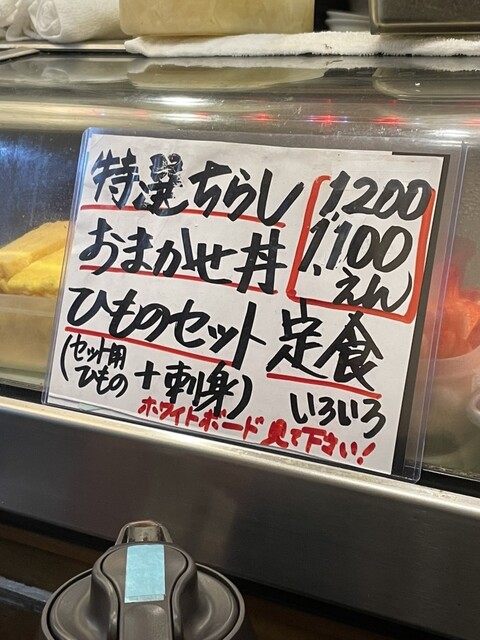 特選ちらし 1,200
おまかせ丼 1,100
えん
ひものセット 定食
(セット用ひもの + 刺身) いろいろ
ホワイトボード見て下さい!